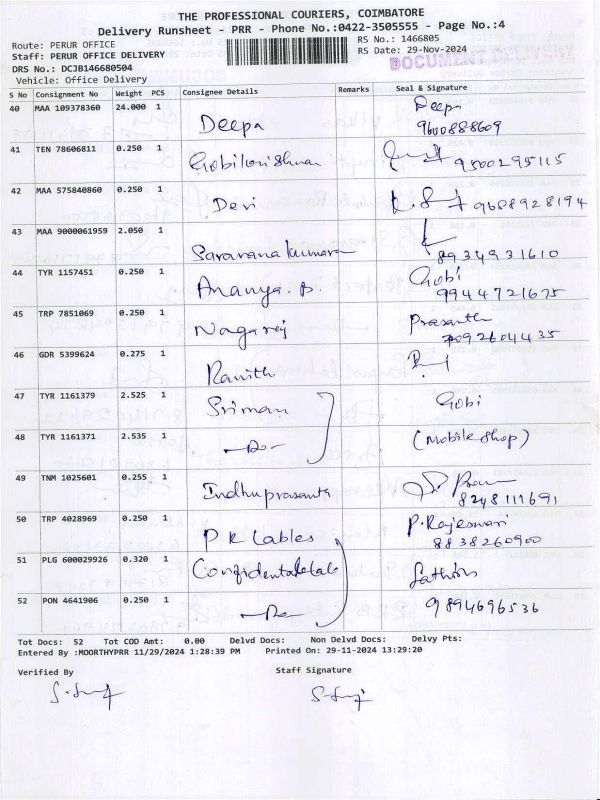 THE PROFESSIONAL COURIERS, COIMBATORE
Delivery Runsheet - PRR - Phone No.:0422-3505555 - Page No.:4
Route: PERUR OFFICE RS No.: 1466805
Staff: PERUR OFFICE DELIVERY RS Date: 29-Nov-2024
DOCUMENT DELIVERY
DRS No.: DCJB146680504
Vehicle: Office Delivery
S No Consignment No Weight PCS Consignee Details Remarks Seal & Signature
40 MAA 109378360 24.000 1 Deepa Deepa
9600888609
41 TEN 78606811 0.250 1 9500295115
42 MAA 575840860 0.250 1 Devi 9688928194
43 MAA 9000061959 2.050 1 Saravana kumaran 8934931610
44 TYR 1157451 0.250 1 Ananya. B. Gobi
9944721675
45 TRP 7851069 0.250 1 Nagaraj Prasanth
7092604435
46 GDR 5399624 0.275 1 Ranith
47 TYR 1161379 2.525 1 Sriman Gobi
48 TYR 1161371 2.535 1 —Do— (Mobile shop)
49 TNM 1025601 0.255 1 Indhuprasanta
8248111691
50 TRP 4028969 0.250 1 P K Cables P. Rajeswari
8838260900
51 PLG 600029926 0.320 1
52 PON 4641906 0.250 1 —Do— 9894696536
Tot Docs: 52 Tot COD Amt: 0.00 Delvd Docs: Non Delvd Docs: Delvy Pts:
Entered By :MOORTHYPRR 11/29/2024 1:28:39 PM Printed On: 29-11-2024 13:29:20
Verified By Staff Signature